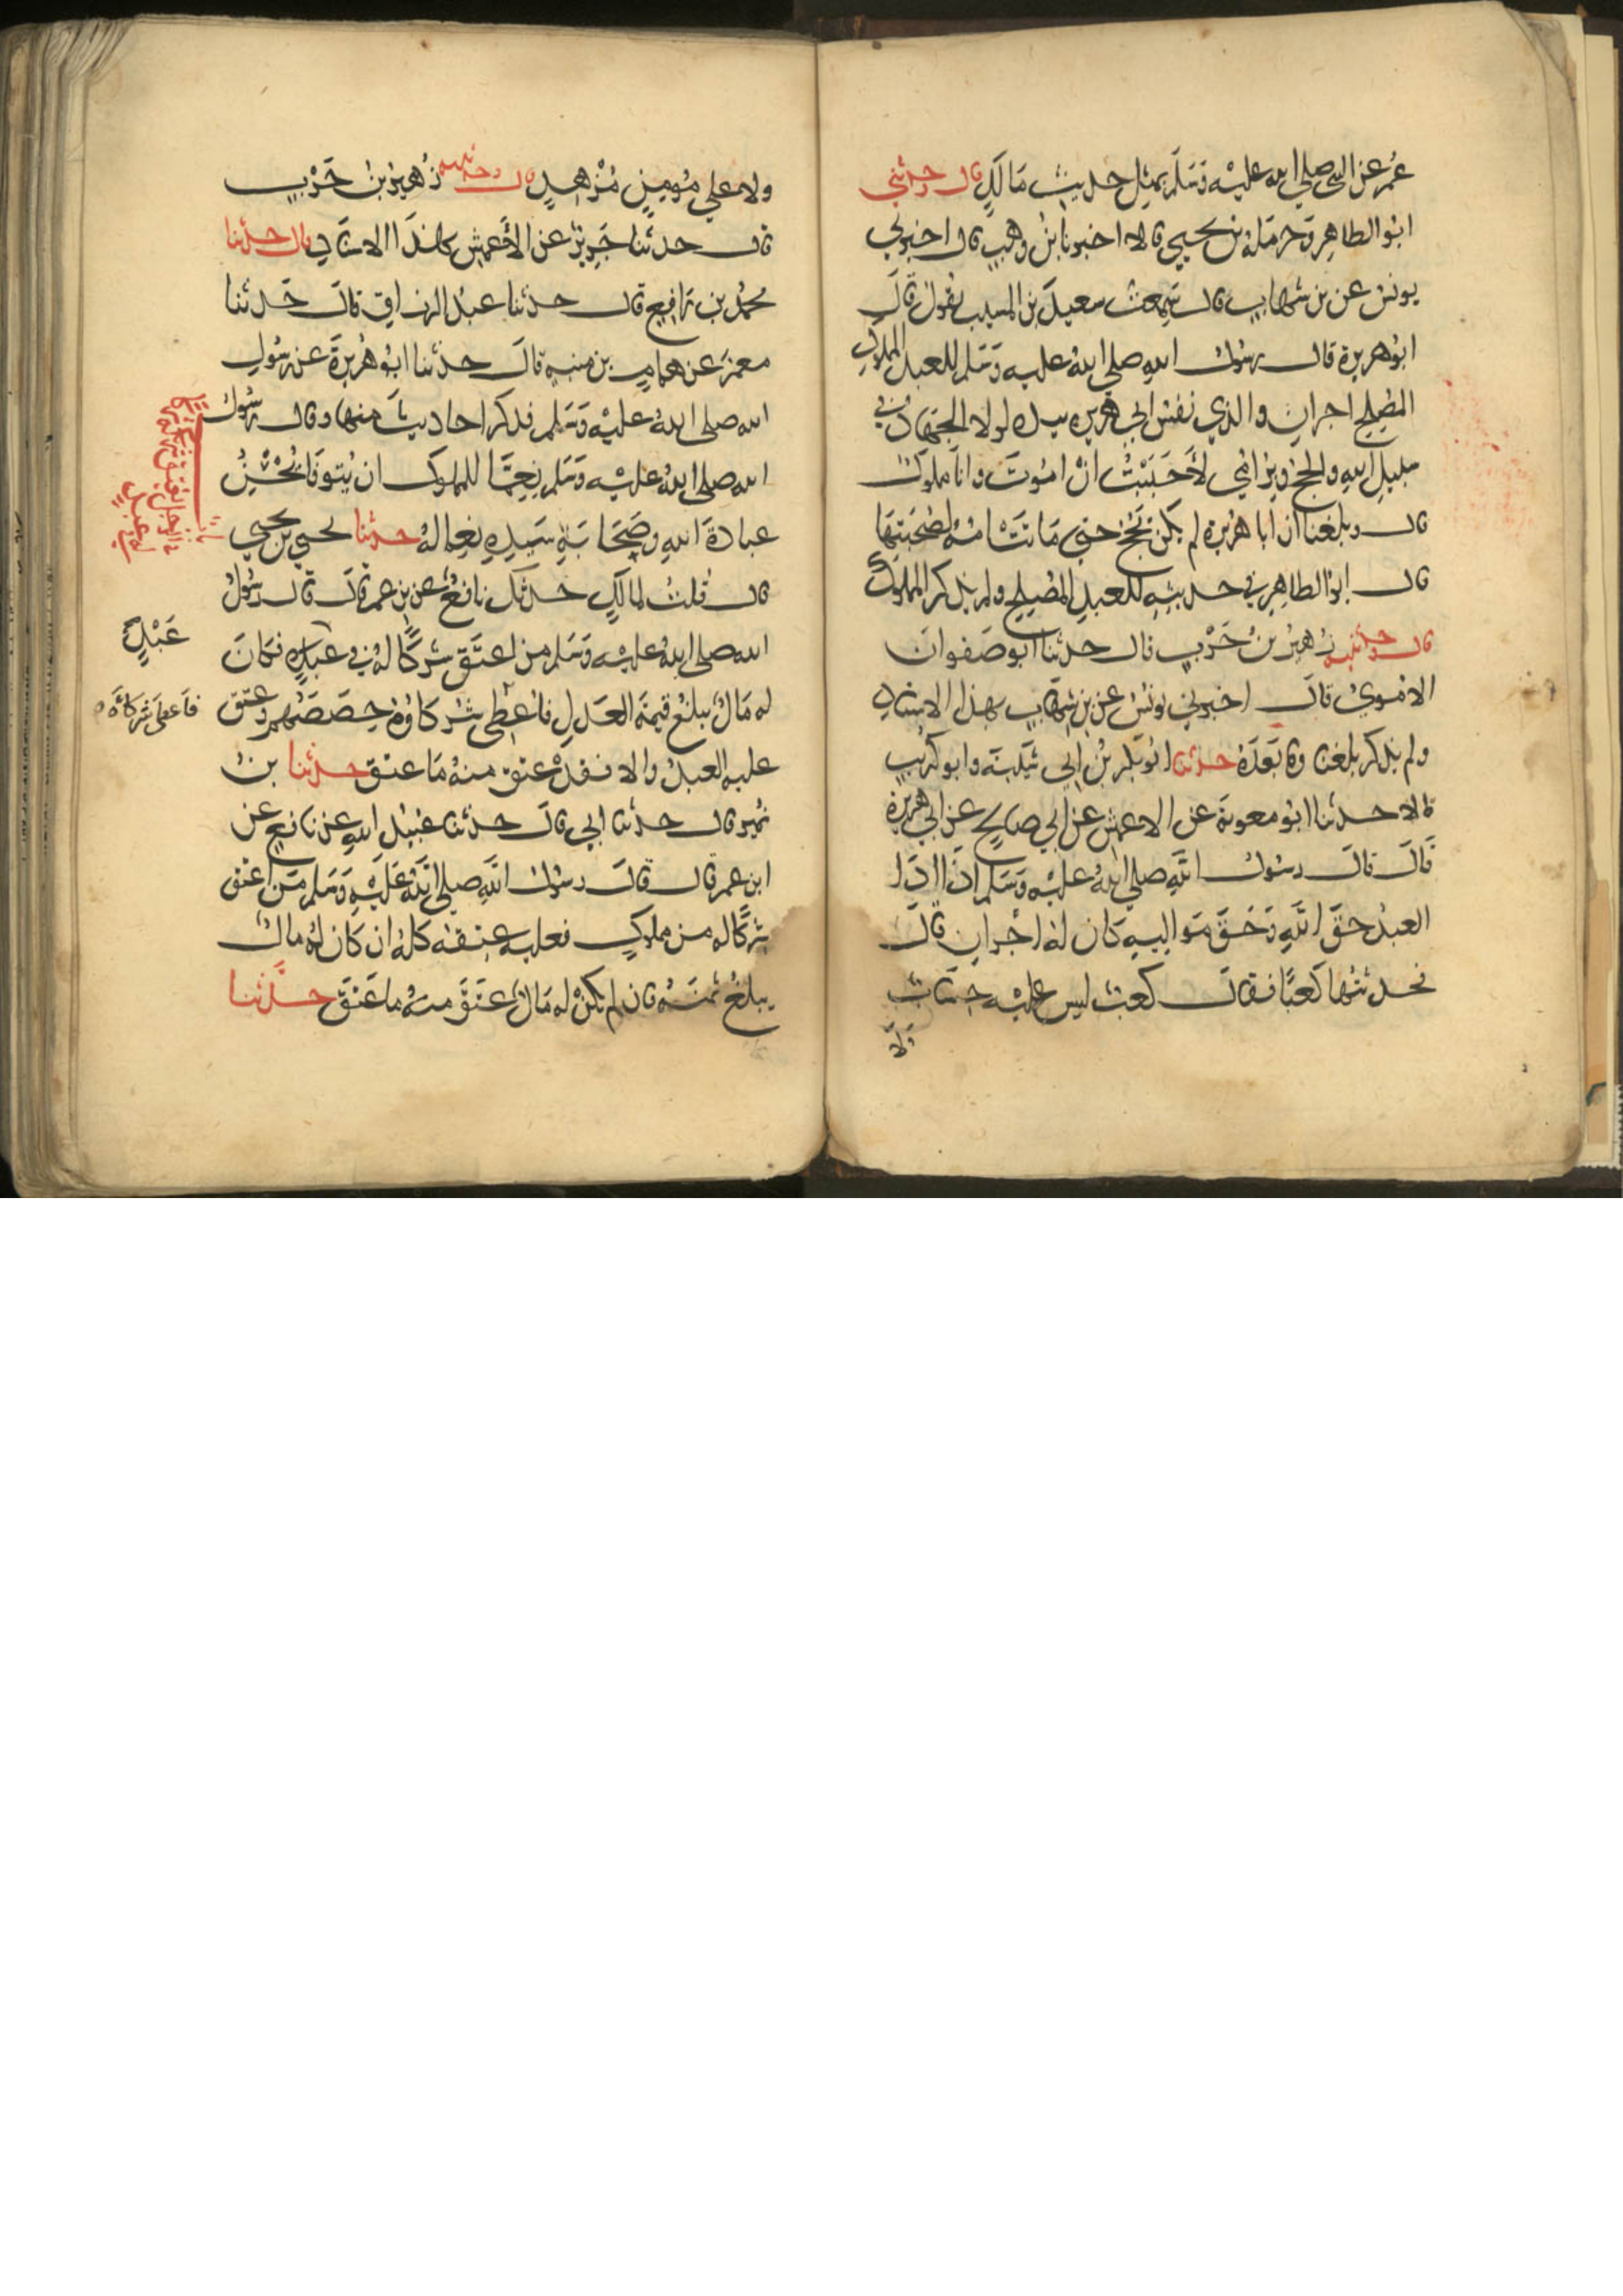 عُمر عن النبي صلى الله عليه وَسَلَّم بمثِل حديث مَالكٍ قال وحدثني
ابوُ الطاهِر وَحرمَلة بن يحيي قالا اخبرنا بنُ وهب قال اخبرني
يونس عن بن شهاب قال سَمِعت سعيدَ بن المسيب يقول قالَ
ابوُ هريرة قال رسُول الله صلى اللهُ عليه وَسَلم للعبد المملوك
المُصِلح اجران والذي نفس ابي هريره بيده لولا الجهاد في
سبيل الله والحج وبرّ امُي لأحَبَبْتُ انْ امُوتَ وانا مملوك
قال وبلغنا ان أبا هُرَيرة لم يكن يَحُج حتي مَاتَتْ امُهُ لصُحْبَتِهَا
قال ابوُ الطاهِر في حديثهِ للعبدِ المُصِلح ولم يذكر المملوك
قال وحدثنيه زهيرُ بنُ حَرْب قال حدثنا ابو صَفوانَ
الامُويُ قالَ اخبرني يونسُ عن بن شِهَاب بهذا الاسناد
ولم يذكر بلغنا وما بَعدَهُ حدثنا ابو بكر بنُ ابي شَيبَة وابو كريب
قالا حدثنا ابوُ معوية عن الاعمش عن ابي صالح عن ابي هريرة
قالَ قالَ رسُول اللهِ صلى اللهُ عليْه وَسَلم اذَا ادَّا
العبدُ حقَّ اللهِ وَحَقَّ مَواليه كان لهُ اجْران قالَ
فحدثتُها كَعبًا فقالَ كعبٌ ليس عليْه حِسَابٌ
وَلا
ولا على مُومِنٍ مُزْهِدٍ قال وحدثنيه زُهيرُ بنُ حَرْب
قال حدثنا جَرِيرٌ عن الأعمش بهَذَا الاسنَادِ قال حدثنا
محمدُ بن رَافِع قال حدثنا عبدُ الرزاق قالَ حَدثنا
معمرَ عن همام بن منبه قالَ حدثنا ابوُ هُرَيرةَ عن رسُولِ
الله صلى اللهُ عليْه وَسَلم فذكر احاديثَ منها وقال رسُول
الله صلى اللهُ عليْه وَسَلم نِعِمَّا للمملوك ان يُتوفَا يُحْسِنُ
عبادةَ اللهِ وصَحَابَةَ سَيدِهِ نِعِما لهُ حدثنا يحيي بن يحيي
قال قُلتُ لمالكٍ حدثكَ نافعٌ عن بن عمر قالَ قال رسُولُ
الله صلى اللهُ عليْه وَسَلم من اعتَق شركًا لهُ في عبدٍ فكانَ
عَبْدٍ
له مَالٌ يبلغُ قيمَة العَدلِ فاعْطى شركاؤهُ حِصَصَهُم وعتق
فاعطى شركَاءَه
عليه العبدُ والا فقدْ عتق منهُ مَا عتق حدثنا بنُ
نمير قال حدثنا ابي قالَ حدثنا عُبيدُ اللهِ عن نافعٍ عن
ابن عمر قال قالَ رسُول اللهِ صلى اللهُ عَلَيْهِ وَسَلم مَن اعتق
شركًا له من مملوكٍ فعليه عِتقهُ كلهُ ان كان لهُ مالٌ
يبلغُ ثمنَهُ فان لم يكنْ له مَالٌ عَتَقَ منهُ ما عَتَقَ حدَّثنا